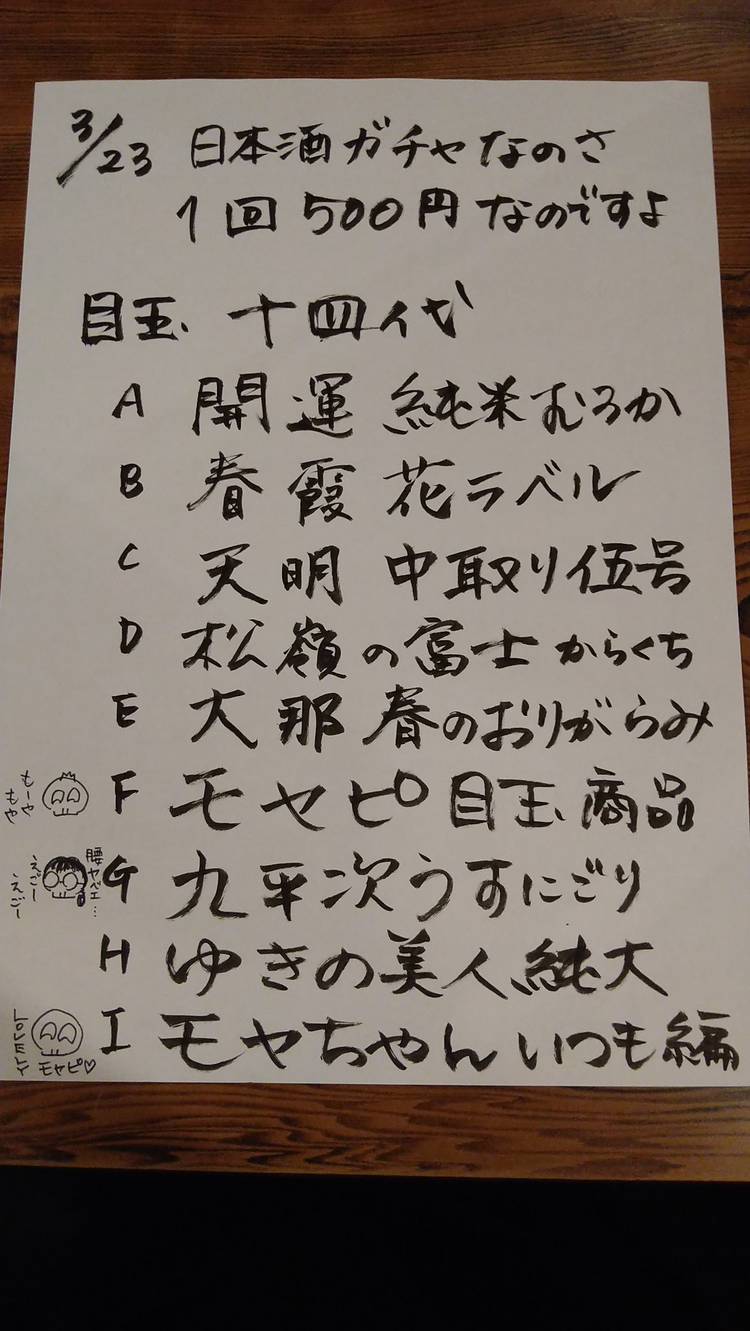 3/23 日本酒ガチャなのさ
1回 500円なのですよ
目玉 十四代
A 開運 純米むろか
B 春霞 花ラベル
C 天明 中取り伍号
D 松嶺の富士からくち
E 大那 春のおりがらみ
もーや
もや
F モヤピ目玉商品
腰ヤベェ…
えごー
えごー
G 九平次うすにごり
H ゆきの美人純大
LOVELY
モヤピ♡
I モヤちゃんいつも編